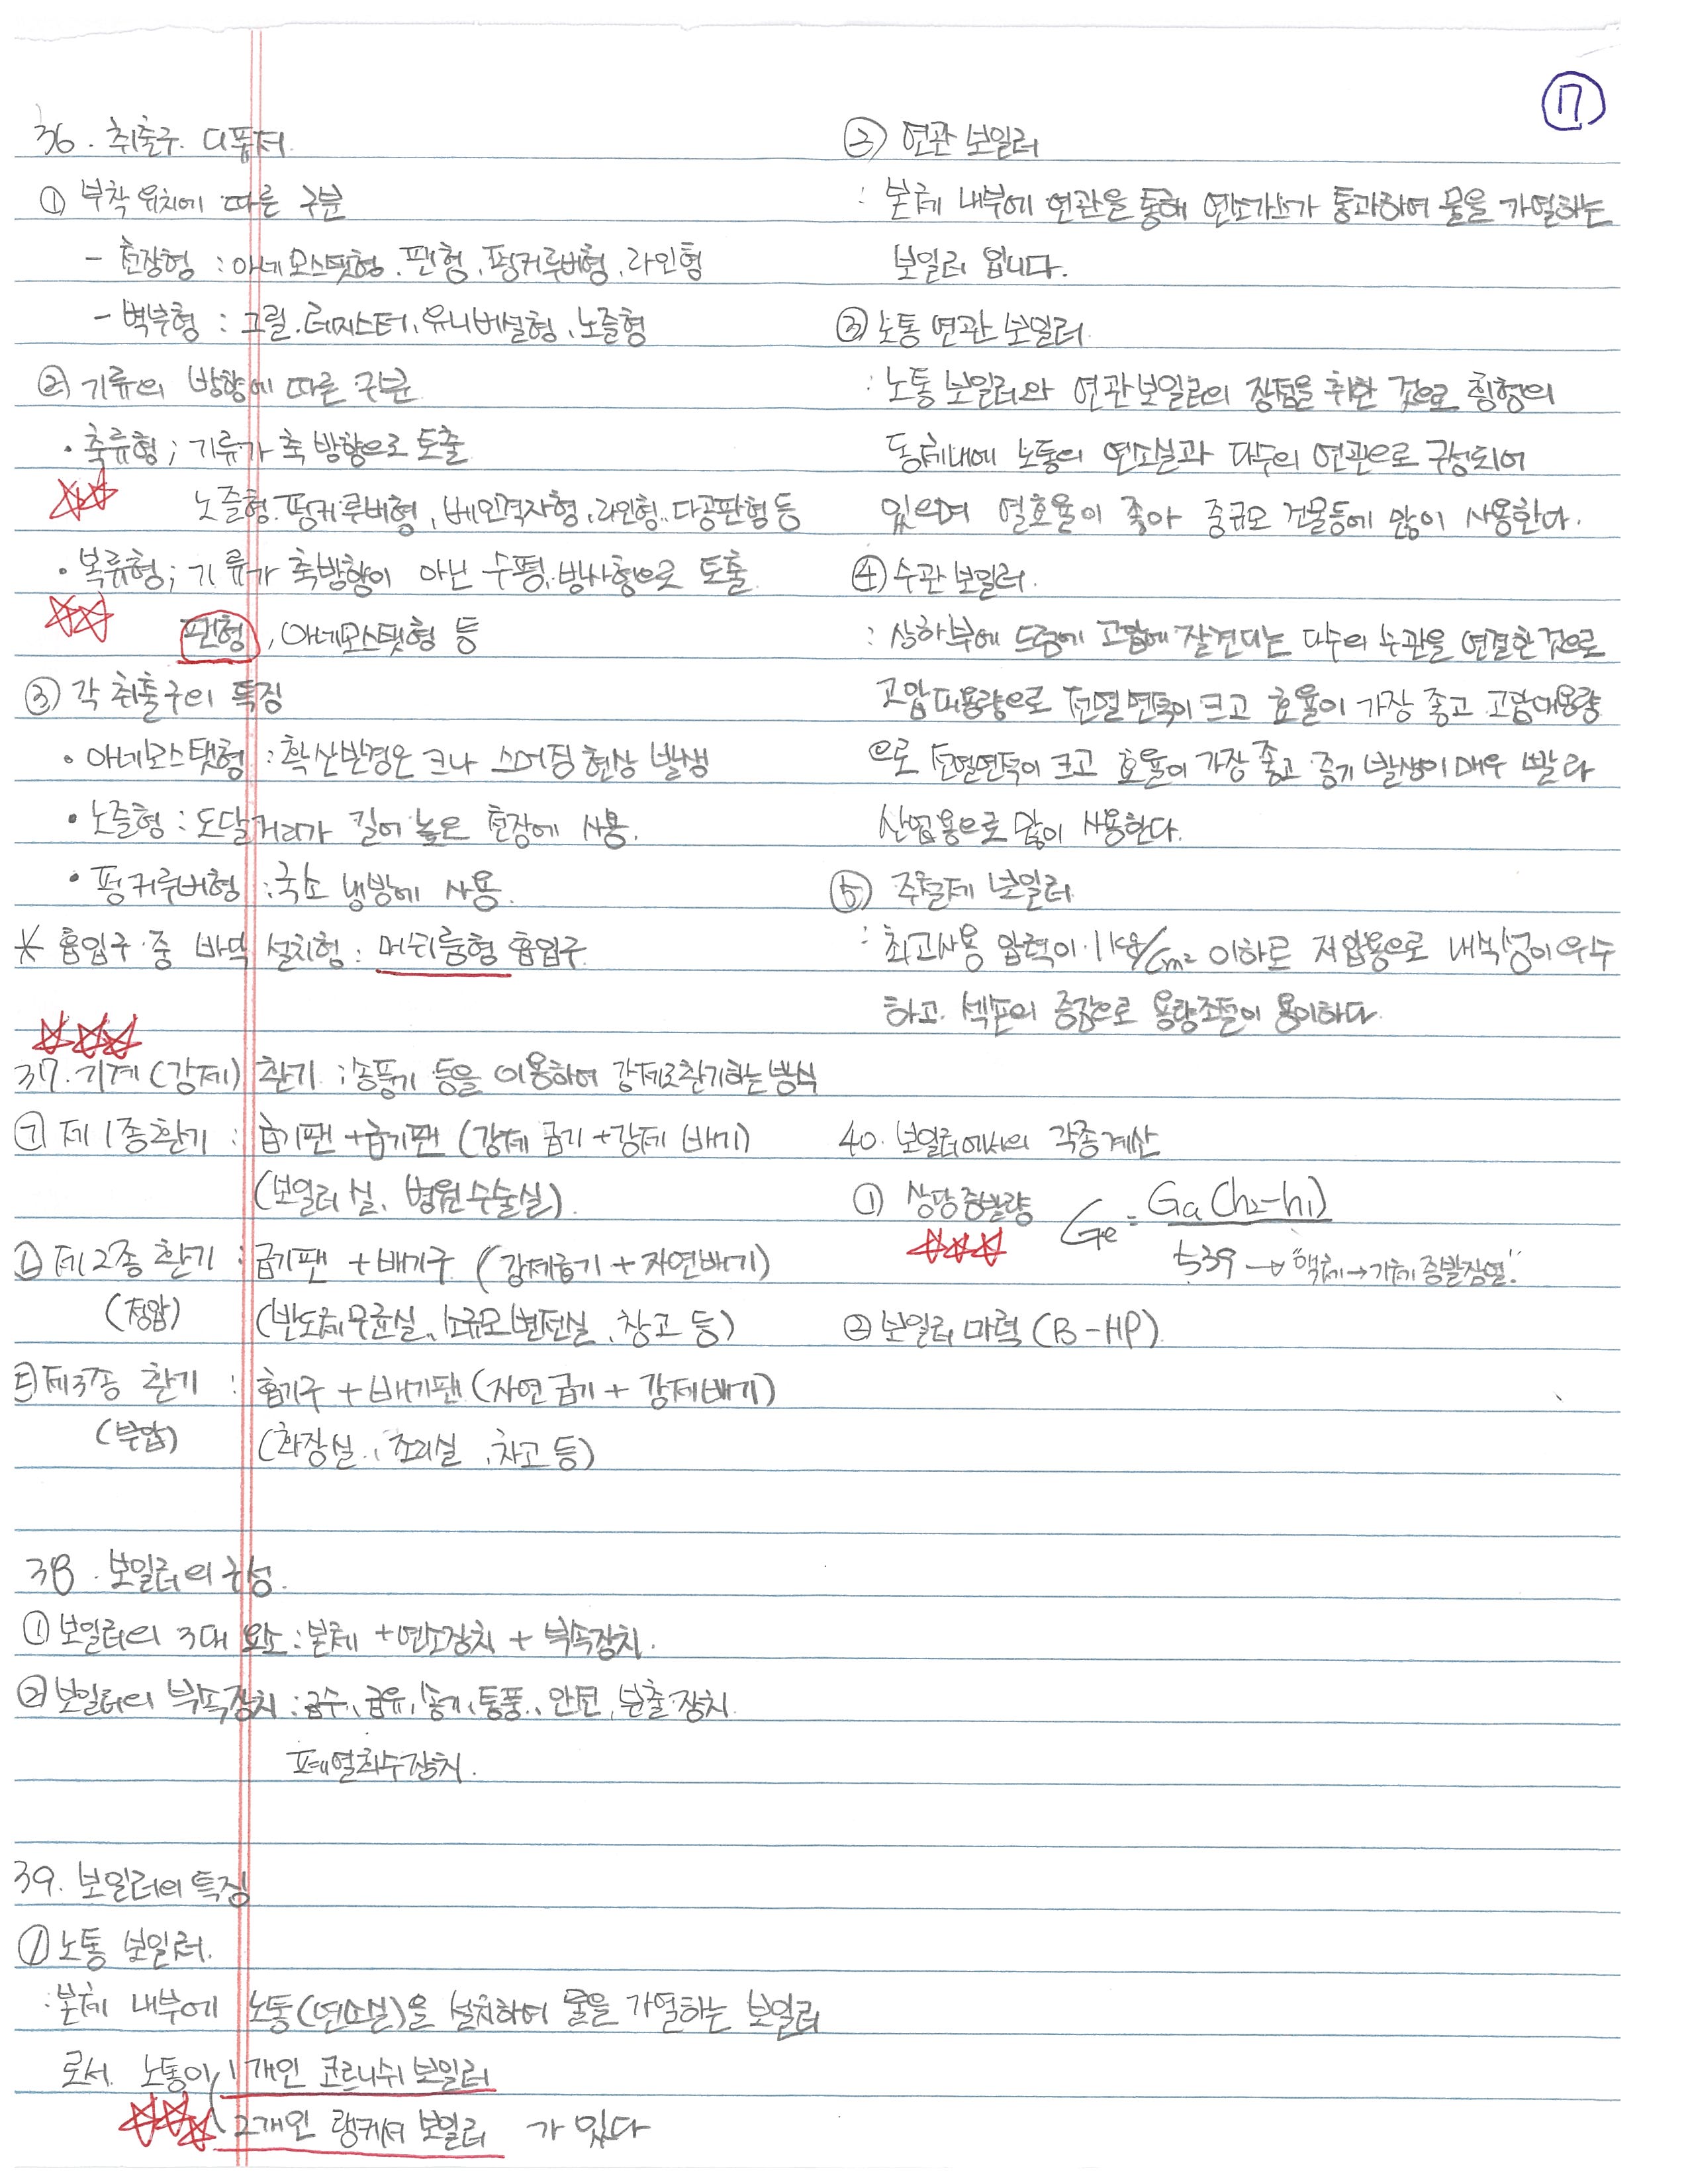 36. 취출구. 디퓨져.
① 부착 위치에 따른 구분
- 천장형 : 아네모스탯형, 팬형, 펑커루버형, 라인형
- 벽부형 : 그릴, 레지스터, 유니버설형, 노즐형
② 기류의 방향에 따른 구분
• 축류형 ; 기류가 축 방향으로 토출
노즐형, 펑커루버형, 베인격자형, 라인형, 다공판형 등
• 복류형 ; 기류가 축방향이 아닌 수평, 방사형으로 토출
팬형, 아네모스탯형 등
③ 각 취출구의 특징
• 아네모스탯형 : 확산반경은 크나 스머징 현상 발생
• 노즐형 : 도달거리가 길어 높은 천장에 사용.
• 펑커루버형 : 국소 냉방에 사용.
* 흡입구 중 바닥 설치형 : 머쉬룸형 흡입구
37. 기계(강제) 환기 : 송풍기 등을 이용하여 강제로환기하는 방식
㉠ 제1종환기 : 급기팬 (강제 급기+강제 배기)
(보일러 실, 병원수술실).
㉡ 제2종 환기 : 급기팬 + 배기구 (강제급기 + 자연배기)
(정압) (반도체무균실, 소규모변전실, 창고 등)
㉢ 제3종 환기 : 흡기구 + 배기팬 (자연급기 + 강제배기)
(부압) (화장실, 조리실, 차고 등)
38. 보일러의 구성.
① 보일러의 3대 요소 : 본체 +연소장치 + 부속장치.
② 보일러의 부속장치 : 급수, 급유, 송기, 통풍, 안전, 분출 장치
폐열회수장치.
39. 보일러의 특징
① 노통 보일러.
: 본체 내부에 노통(연소실)을 설치하여 물을 가열하는 보일러
로서 노통이 1개인 코르니쉬 보일러
2개인 랭커셔 보일러 가 있다
⑰
② 연관 보일러
: 본체 내부에 연관을 통해 연소가스가 통과하여 물을 가열하는
보일러 입니다.
③ 노통 연관 보일러.
: 노통 보일러와 연관보일러의 장점을 취한 것으로 횡형의
동체내에 노통의 연소실과 다수의 연관으로 구성되어
있으며 열효율이 좋아 중규모 건물등에 많이 사용한다.
④ 수관 보일러.
: 상하부에 드럼에 고압에 잘견디는 다수의 수관을 연결한 것으로
고압대용량으로 전열면적이 크고 효율이 가장 좋고 고압대용량
으로 전열면적이 크고 효율이 가장 좋고 증기 발생이 매우 빨라
산업용으로 많이 사용한다.
⑤ 주철제 보일러
: 최고사용 압력이 1kg/cm² 이하로 저압용으로 내식성이 우수
하고 섹션의 증감으로 용량조절이 용이하다.
40. 보일러에서의 각종계산
① 상당증발량 Ge = Ga(h₂-h₁) / 539 → "액체→기체 증발잠열"
② 보일러 마력 (B-HP)